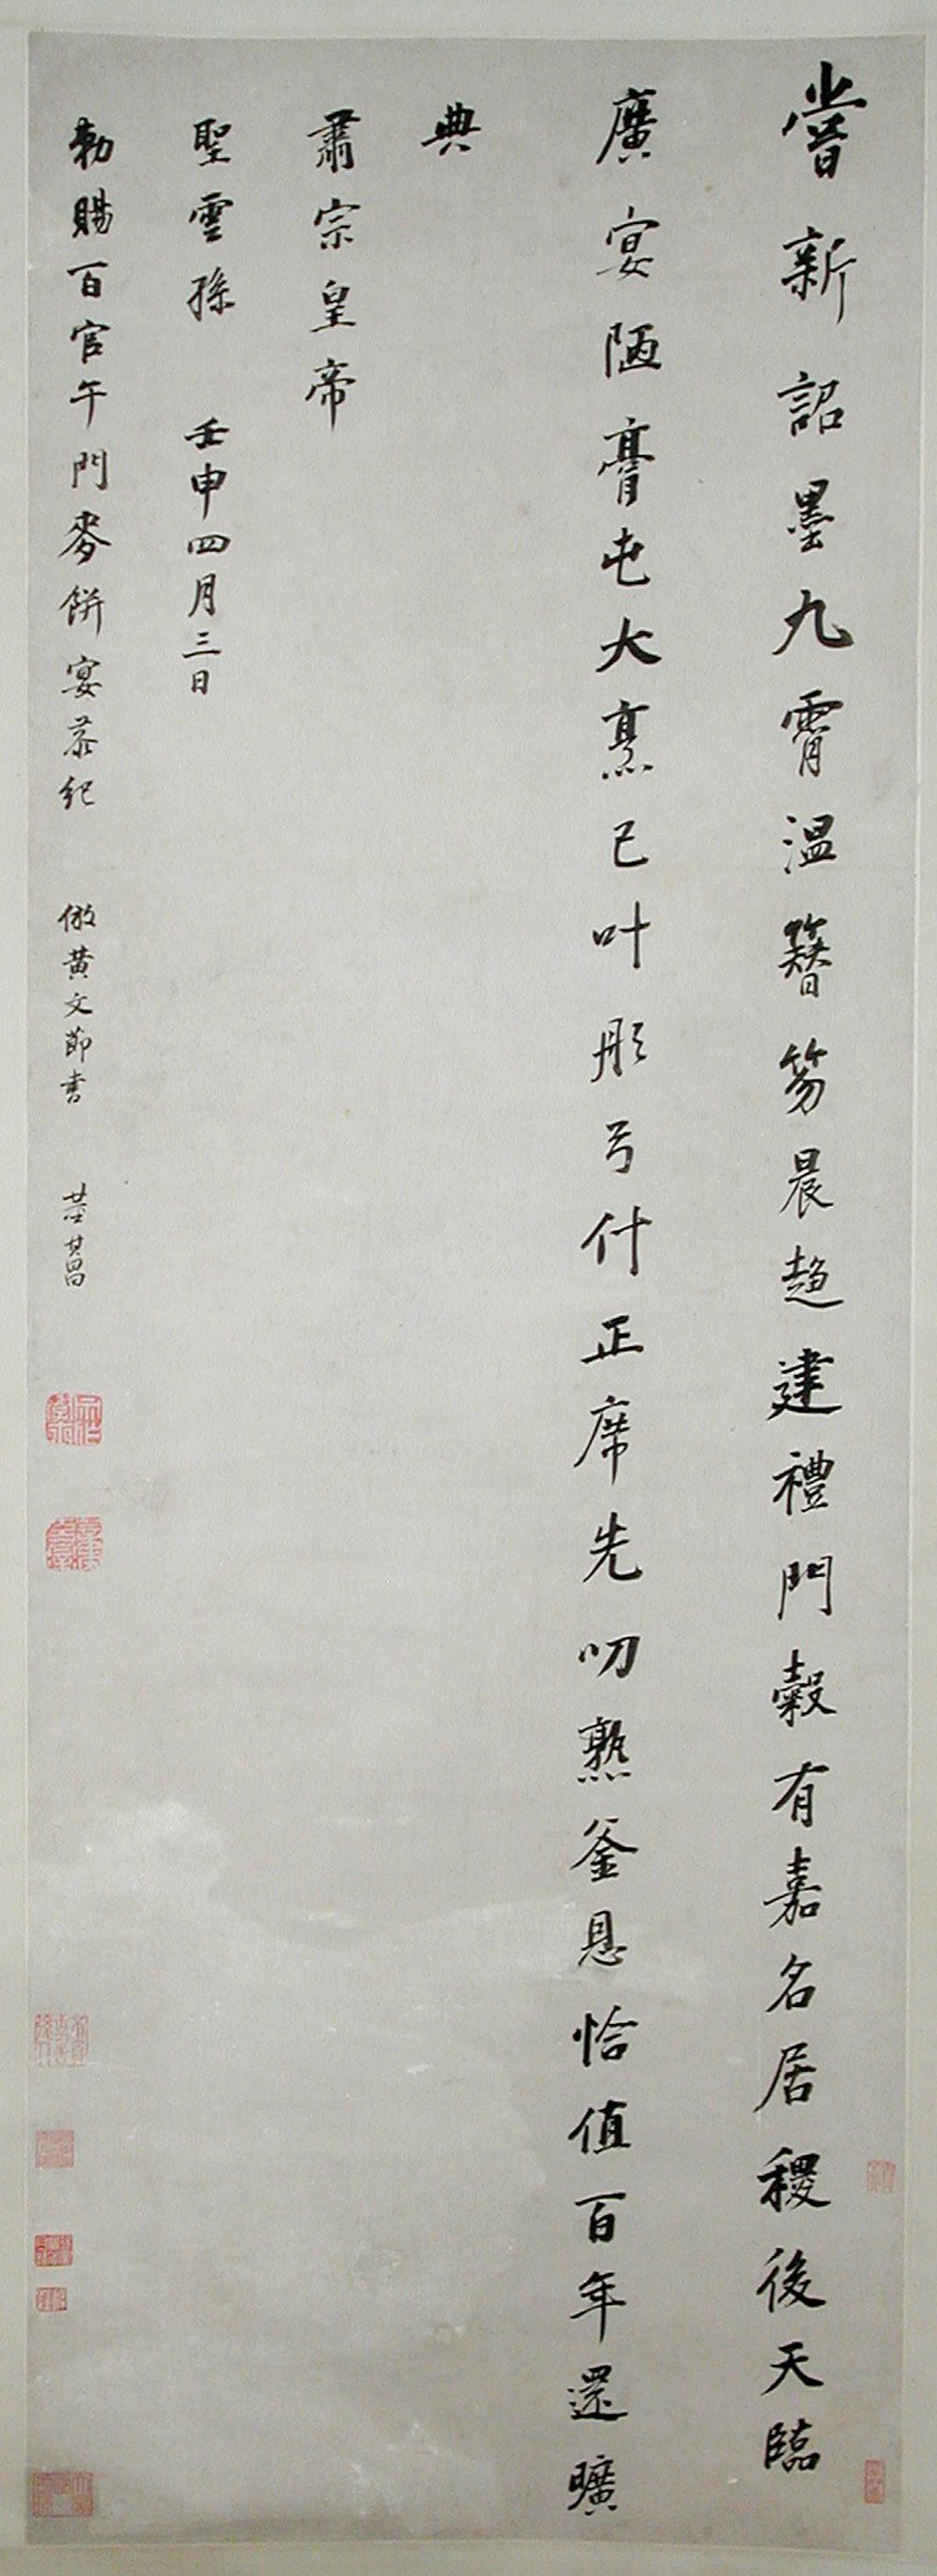 嘗新詔墨九霄温簪笏晨趍建禮門穀有嘉名居稷後天臨
廣宴陋膏屯大烹已叶彤弓什正席先叨熟釜恩恰值百年還曠
典
肅宗皇帝
聖雲孫 壬申四月三日
勅賜百官午門麥餅宴恭紀 倣黄文節書 董其昌